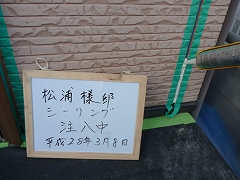 松浦様邸
シーリング
注入中
平成28年3月8日